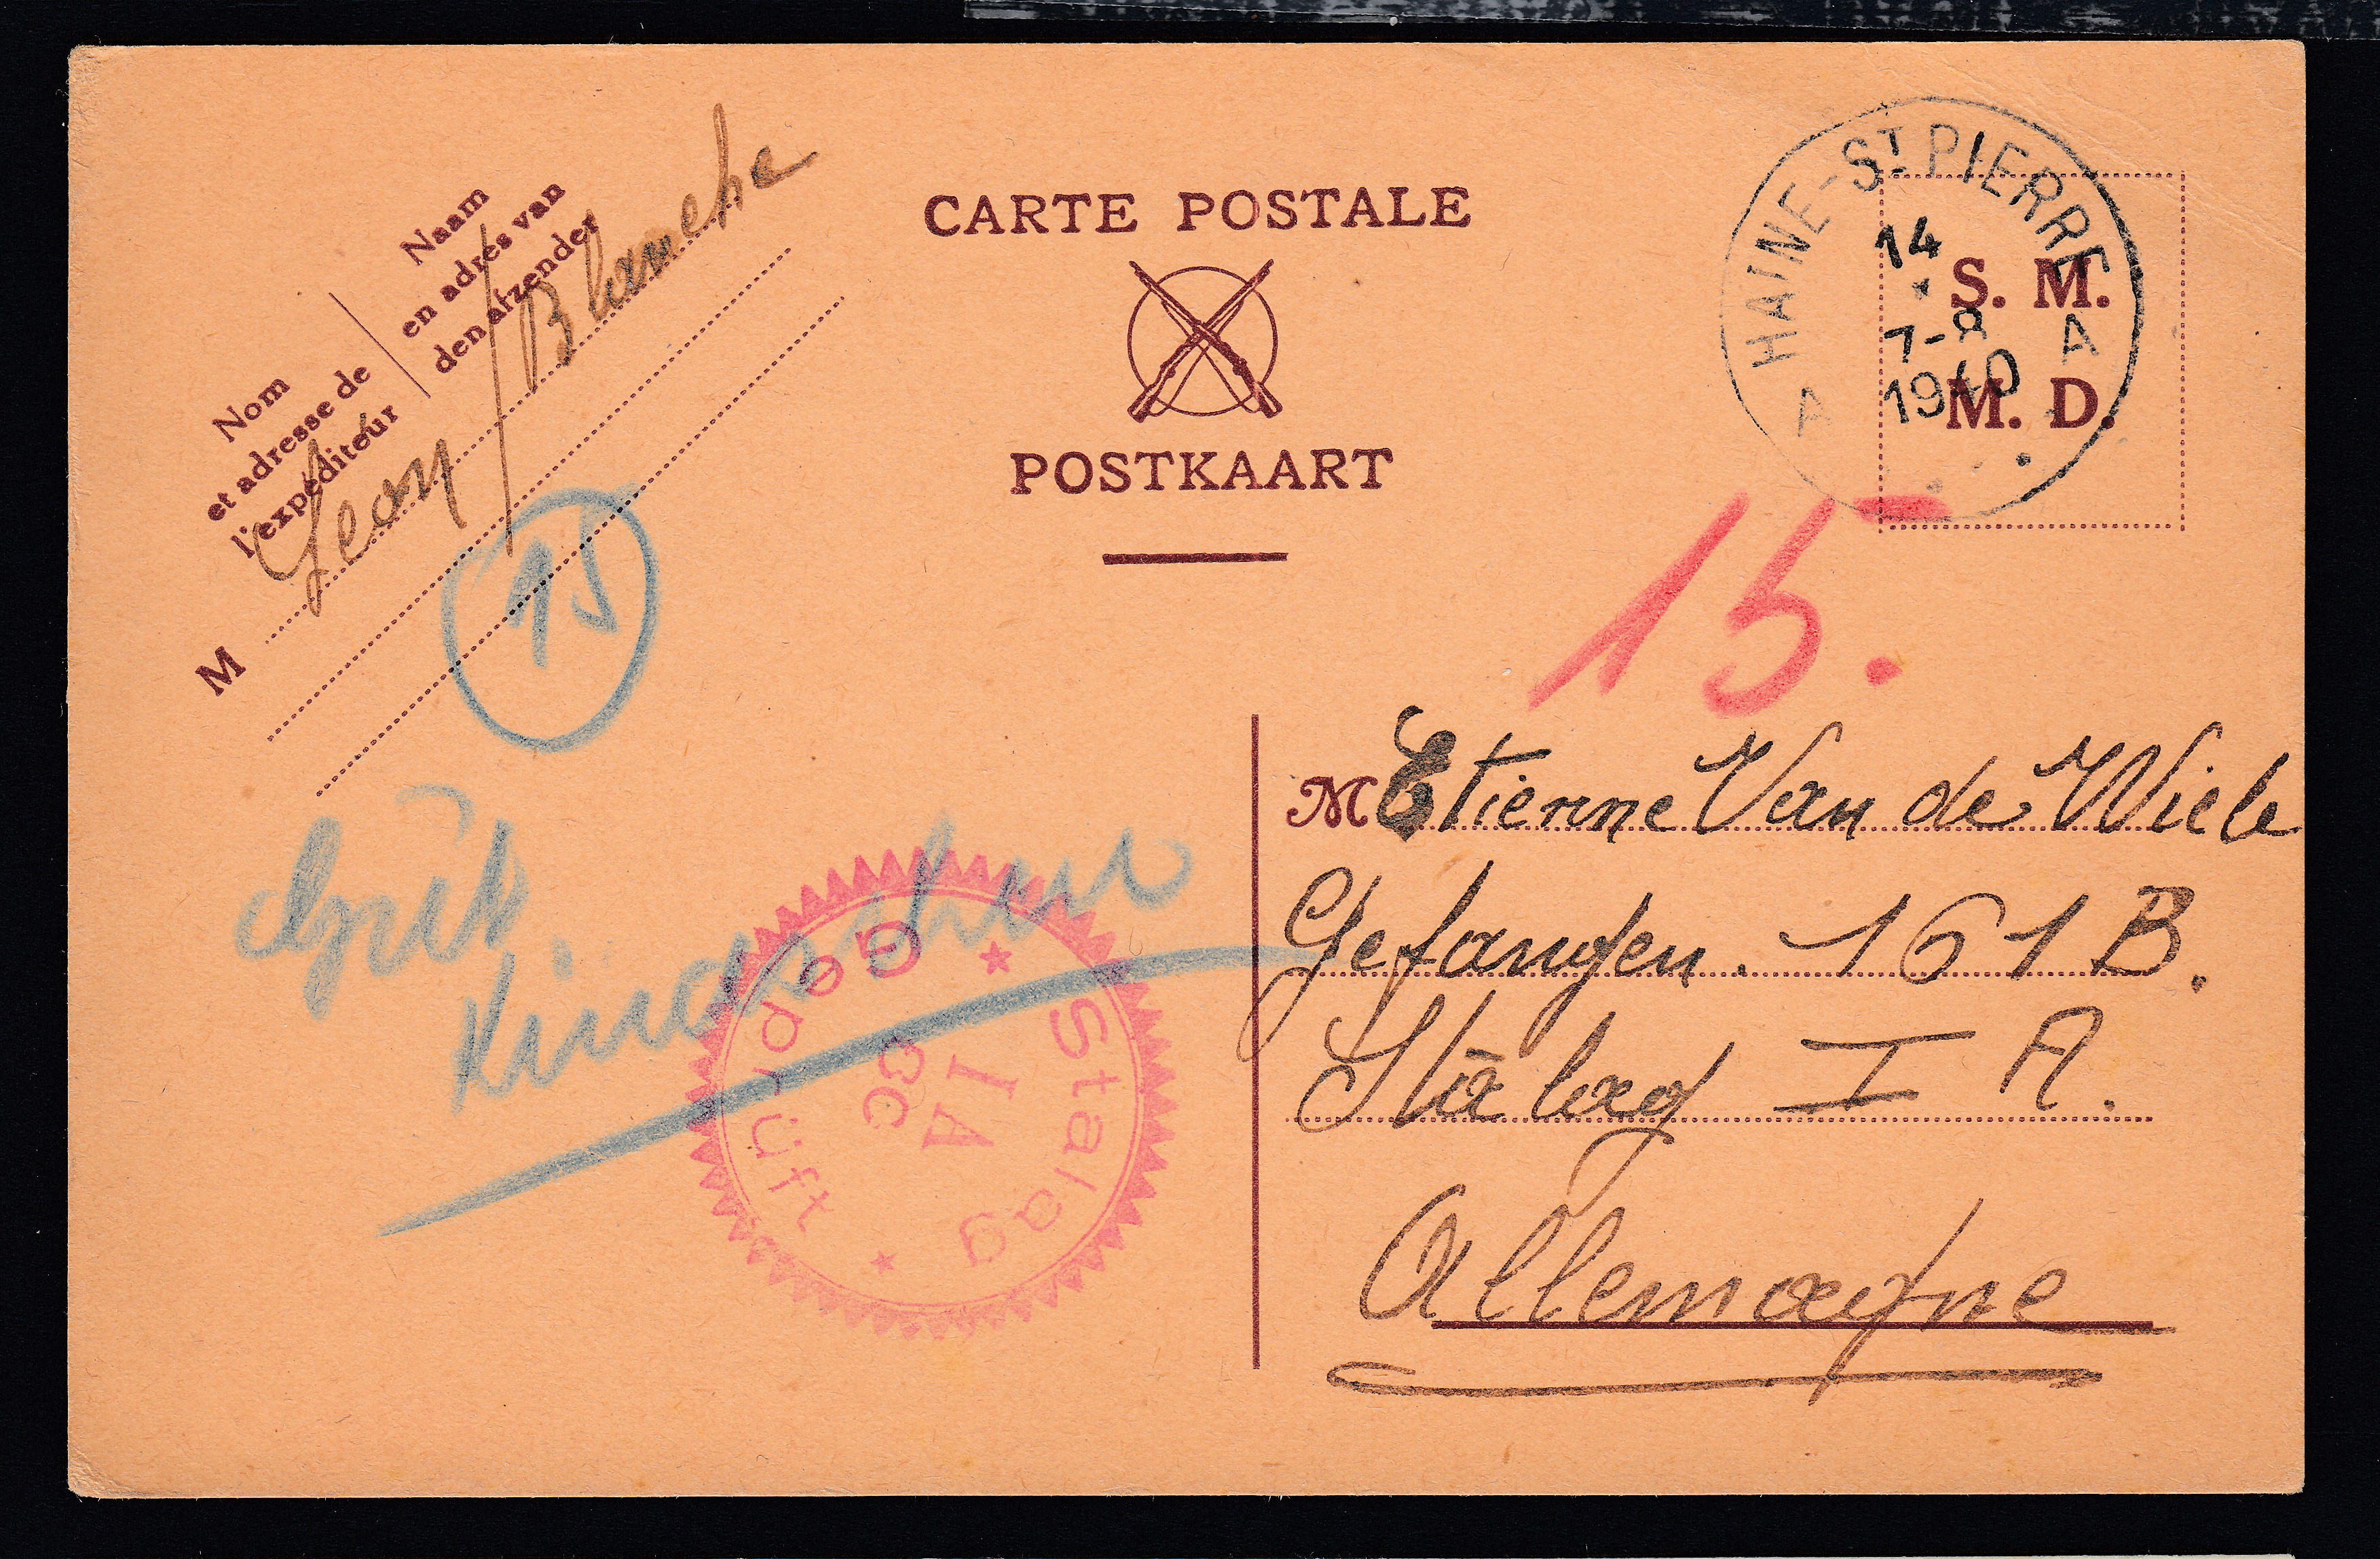 Naam
en adres van
den afzender
Nom
et adresse de
l'expéditeur
M Jean / Blanche
CARTE POSTALE
POSTKAART
HAINE-ST PIERRE
14
7-8
1940
A A
S. M.
M. D.
15
15.
M Etienne Van de Wiele
Gefangen. 161 B.
Stalag I A.
Allemagne
Stalag
IA
CC
Geprüft